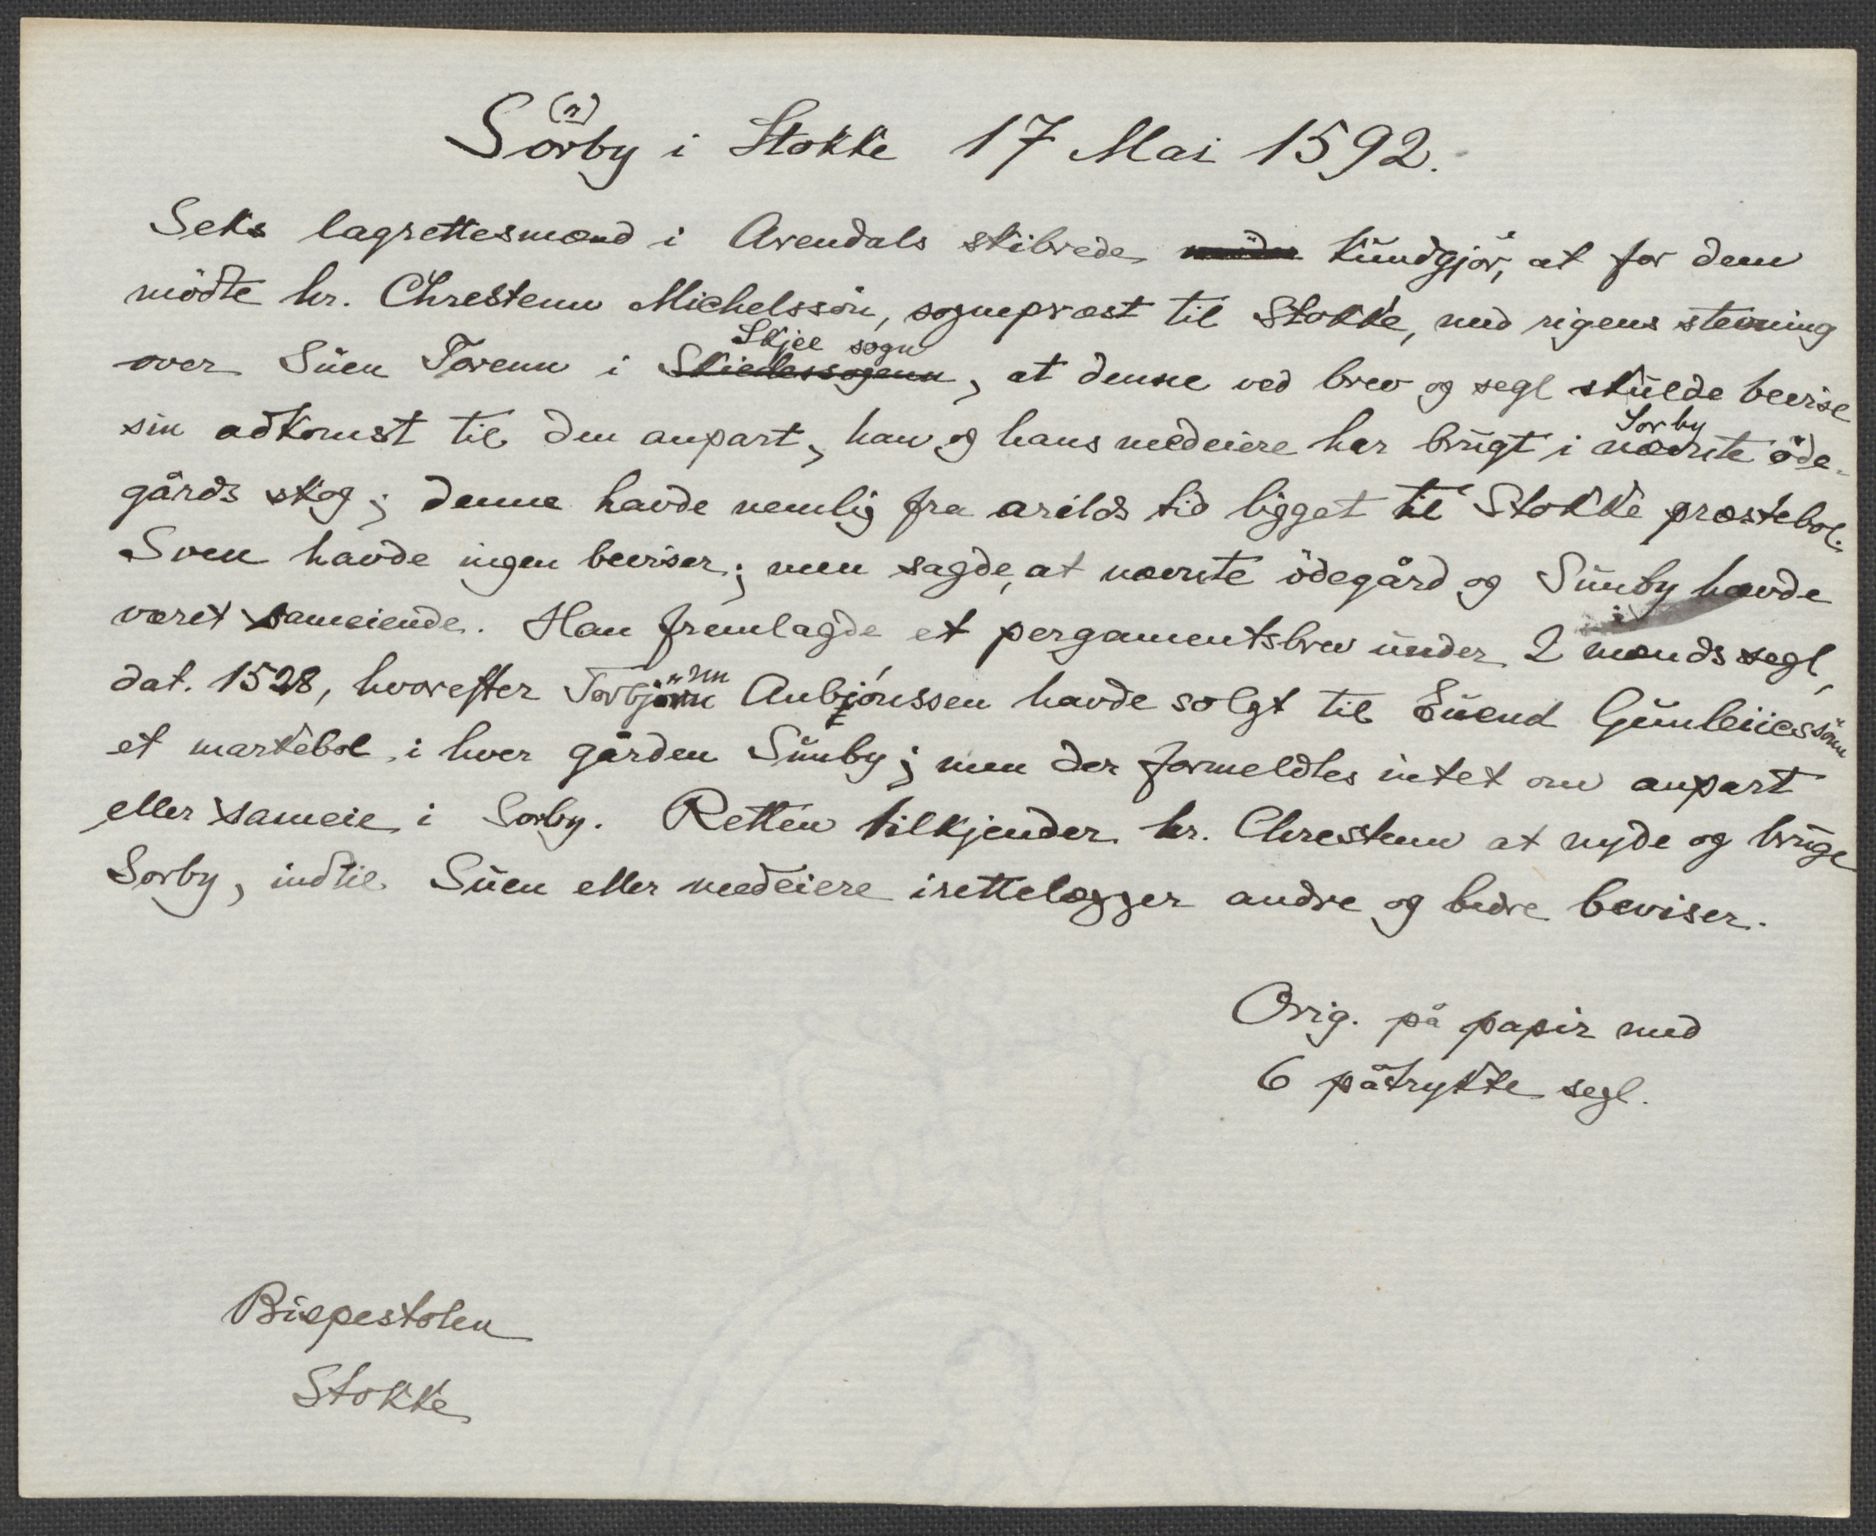 Sörby i Stokke 17 Mai 1592.
(n)
Seks lagrettesmænd i Arendals skibrede kundgjör, at for dem
mödte hr. Chrestenn Michelssön, sognepræst til Stokke, med rigens stevning
over Suen Torenn i Skjee sogn, at denne ved brev og segl skulde bevise
sin adkomst til den anpart, han og hans medeiere har brugt i nævnte Sorby öde-
gårds skog; denne havde nemlig fra arilds tid ligget til Stokke præstebol.
Sven havde ingen beviser; men sagde, at nævnte ödegård og Sunby havde
været sameiende. Han fremlagde et pergamentsbrev under 2 mænds segl,
dat. 1528, hvorefter Torbjönn Anbjönssen havde solgt til Suend Gunleiicssönn
et markebol i hver gården Sunby; men der formeldtes intet om anpart
eller sameie i Sorby. Retten tilkjender hr. Chrestenn at nyde og bruge
Sorby, indtil Suen eller medeiere irettelægger andre og bedre beviser.
Orig. på papir med
6 påtrykte segl.
Bispestolen
Stokke